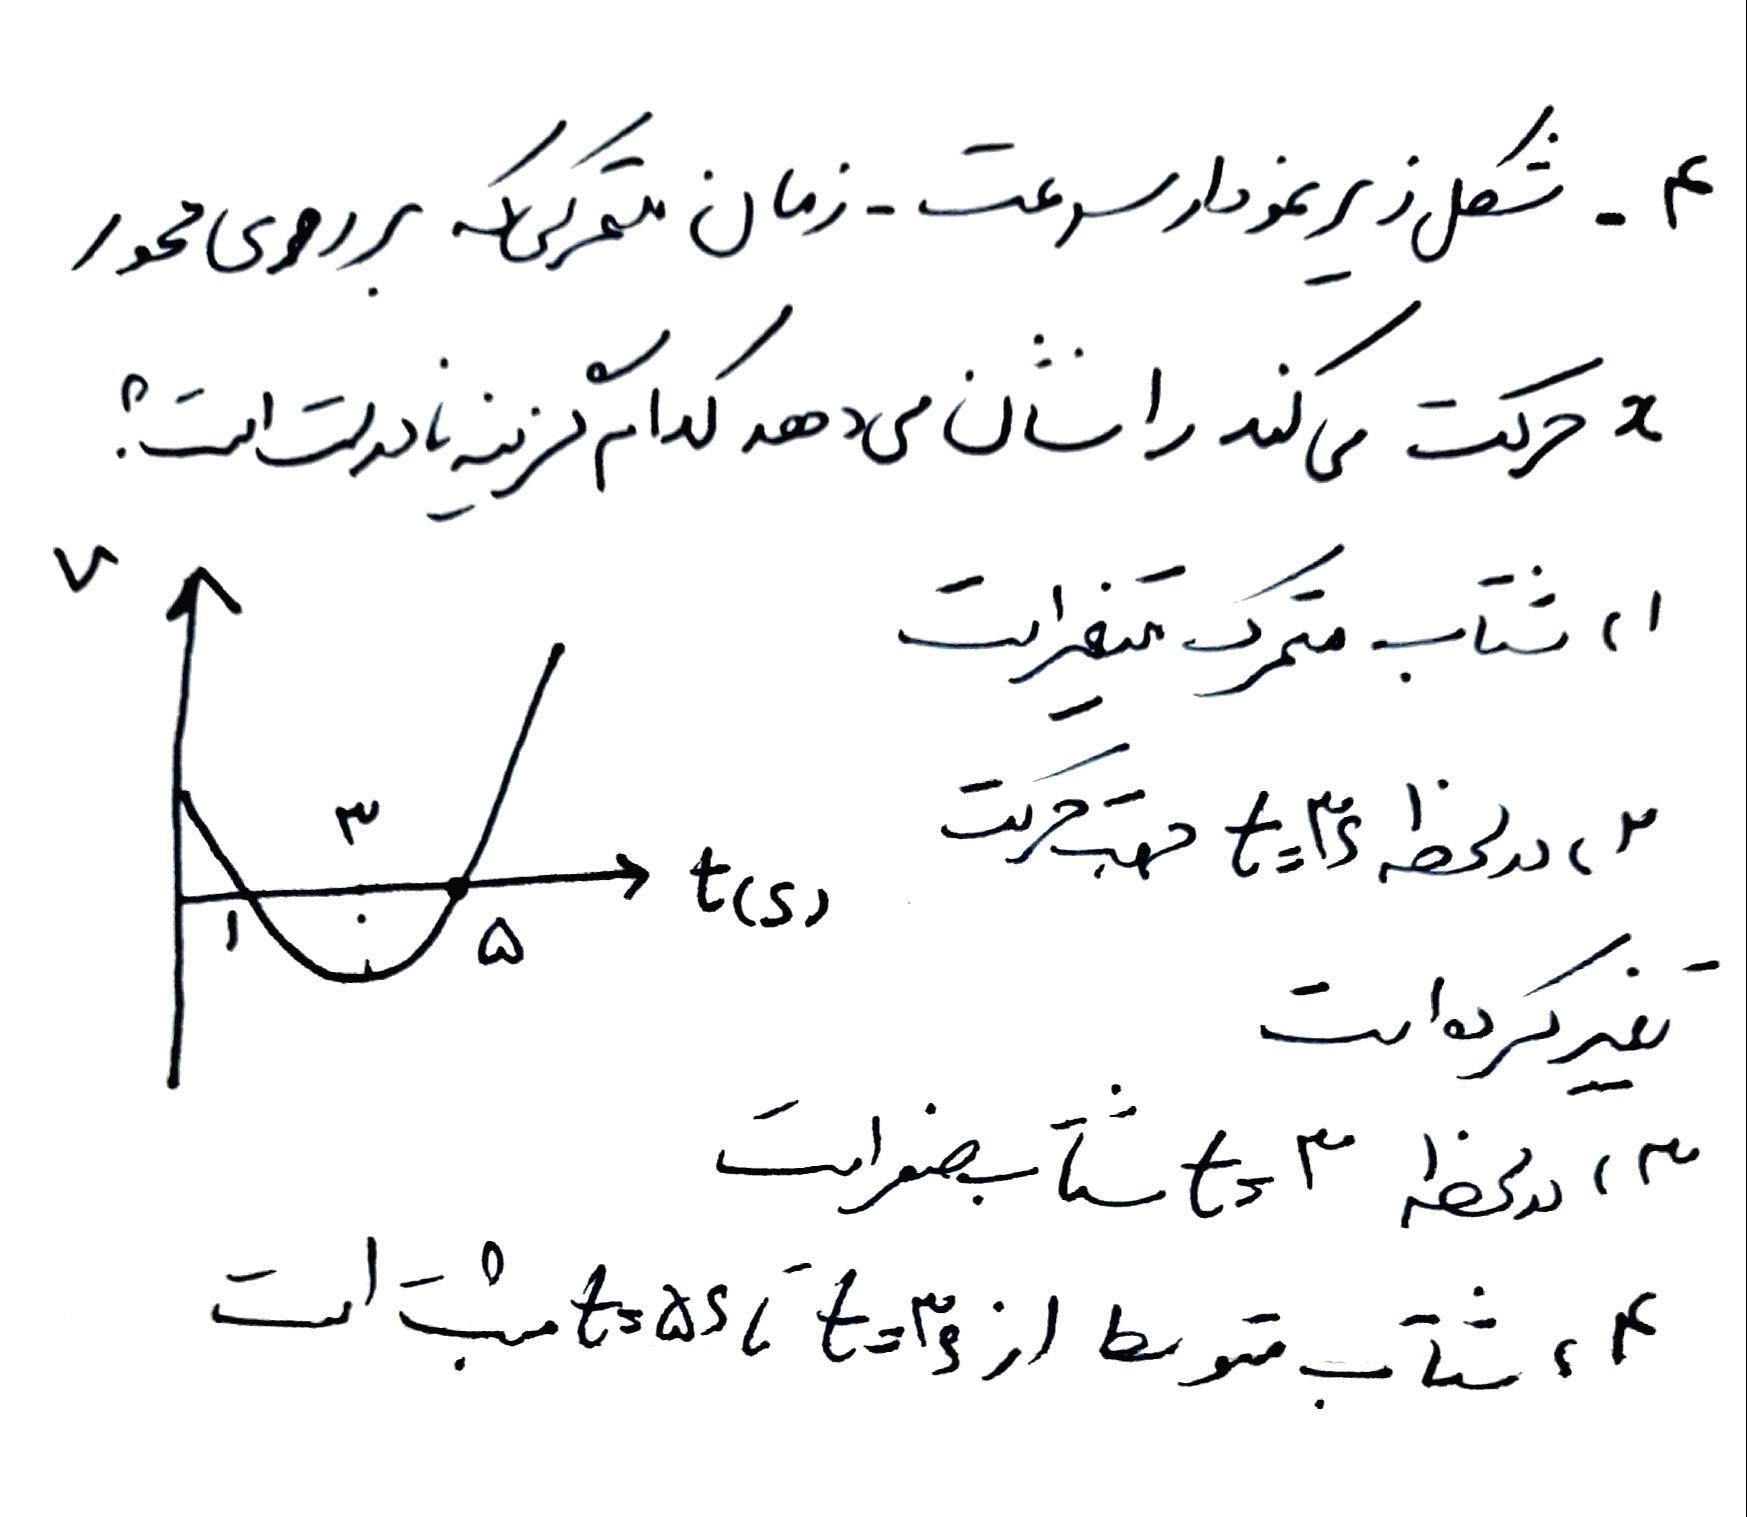 ۴ - شکل زیر نمودار سرعت - زمان متحرکی که بر روی محور
x حرکت می کند را نشان می دهد کدام گزینه نادرست است؟
۱) شتاب متحرک متغیر است
۲) در لحظه t=۳s جهت حرکت
تغییر کرده است
۳) در لحظه t=۳ شتاب صفر است
۴) شتاب متوسط از t=۳s تا t=۵s مثبت است
v
۳
t(s)
۱
۵